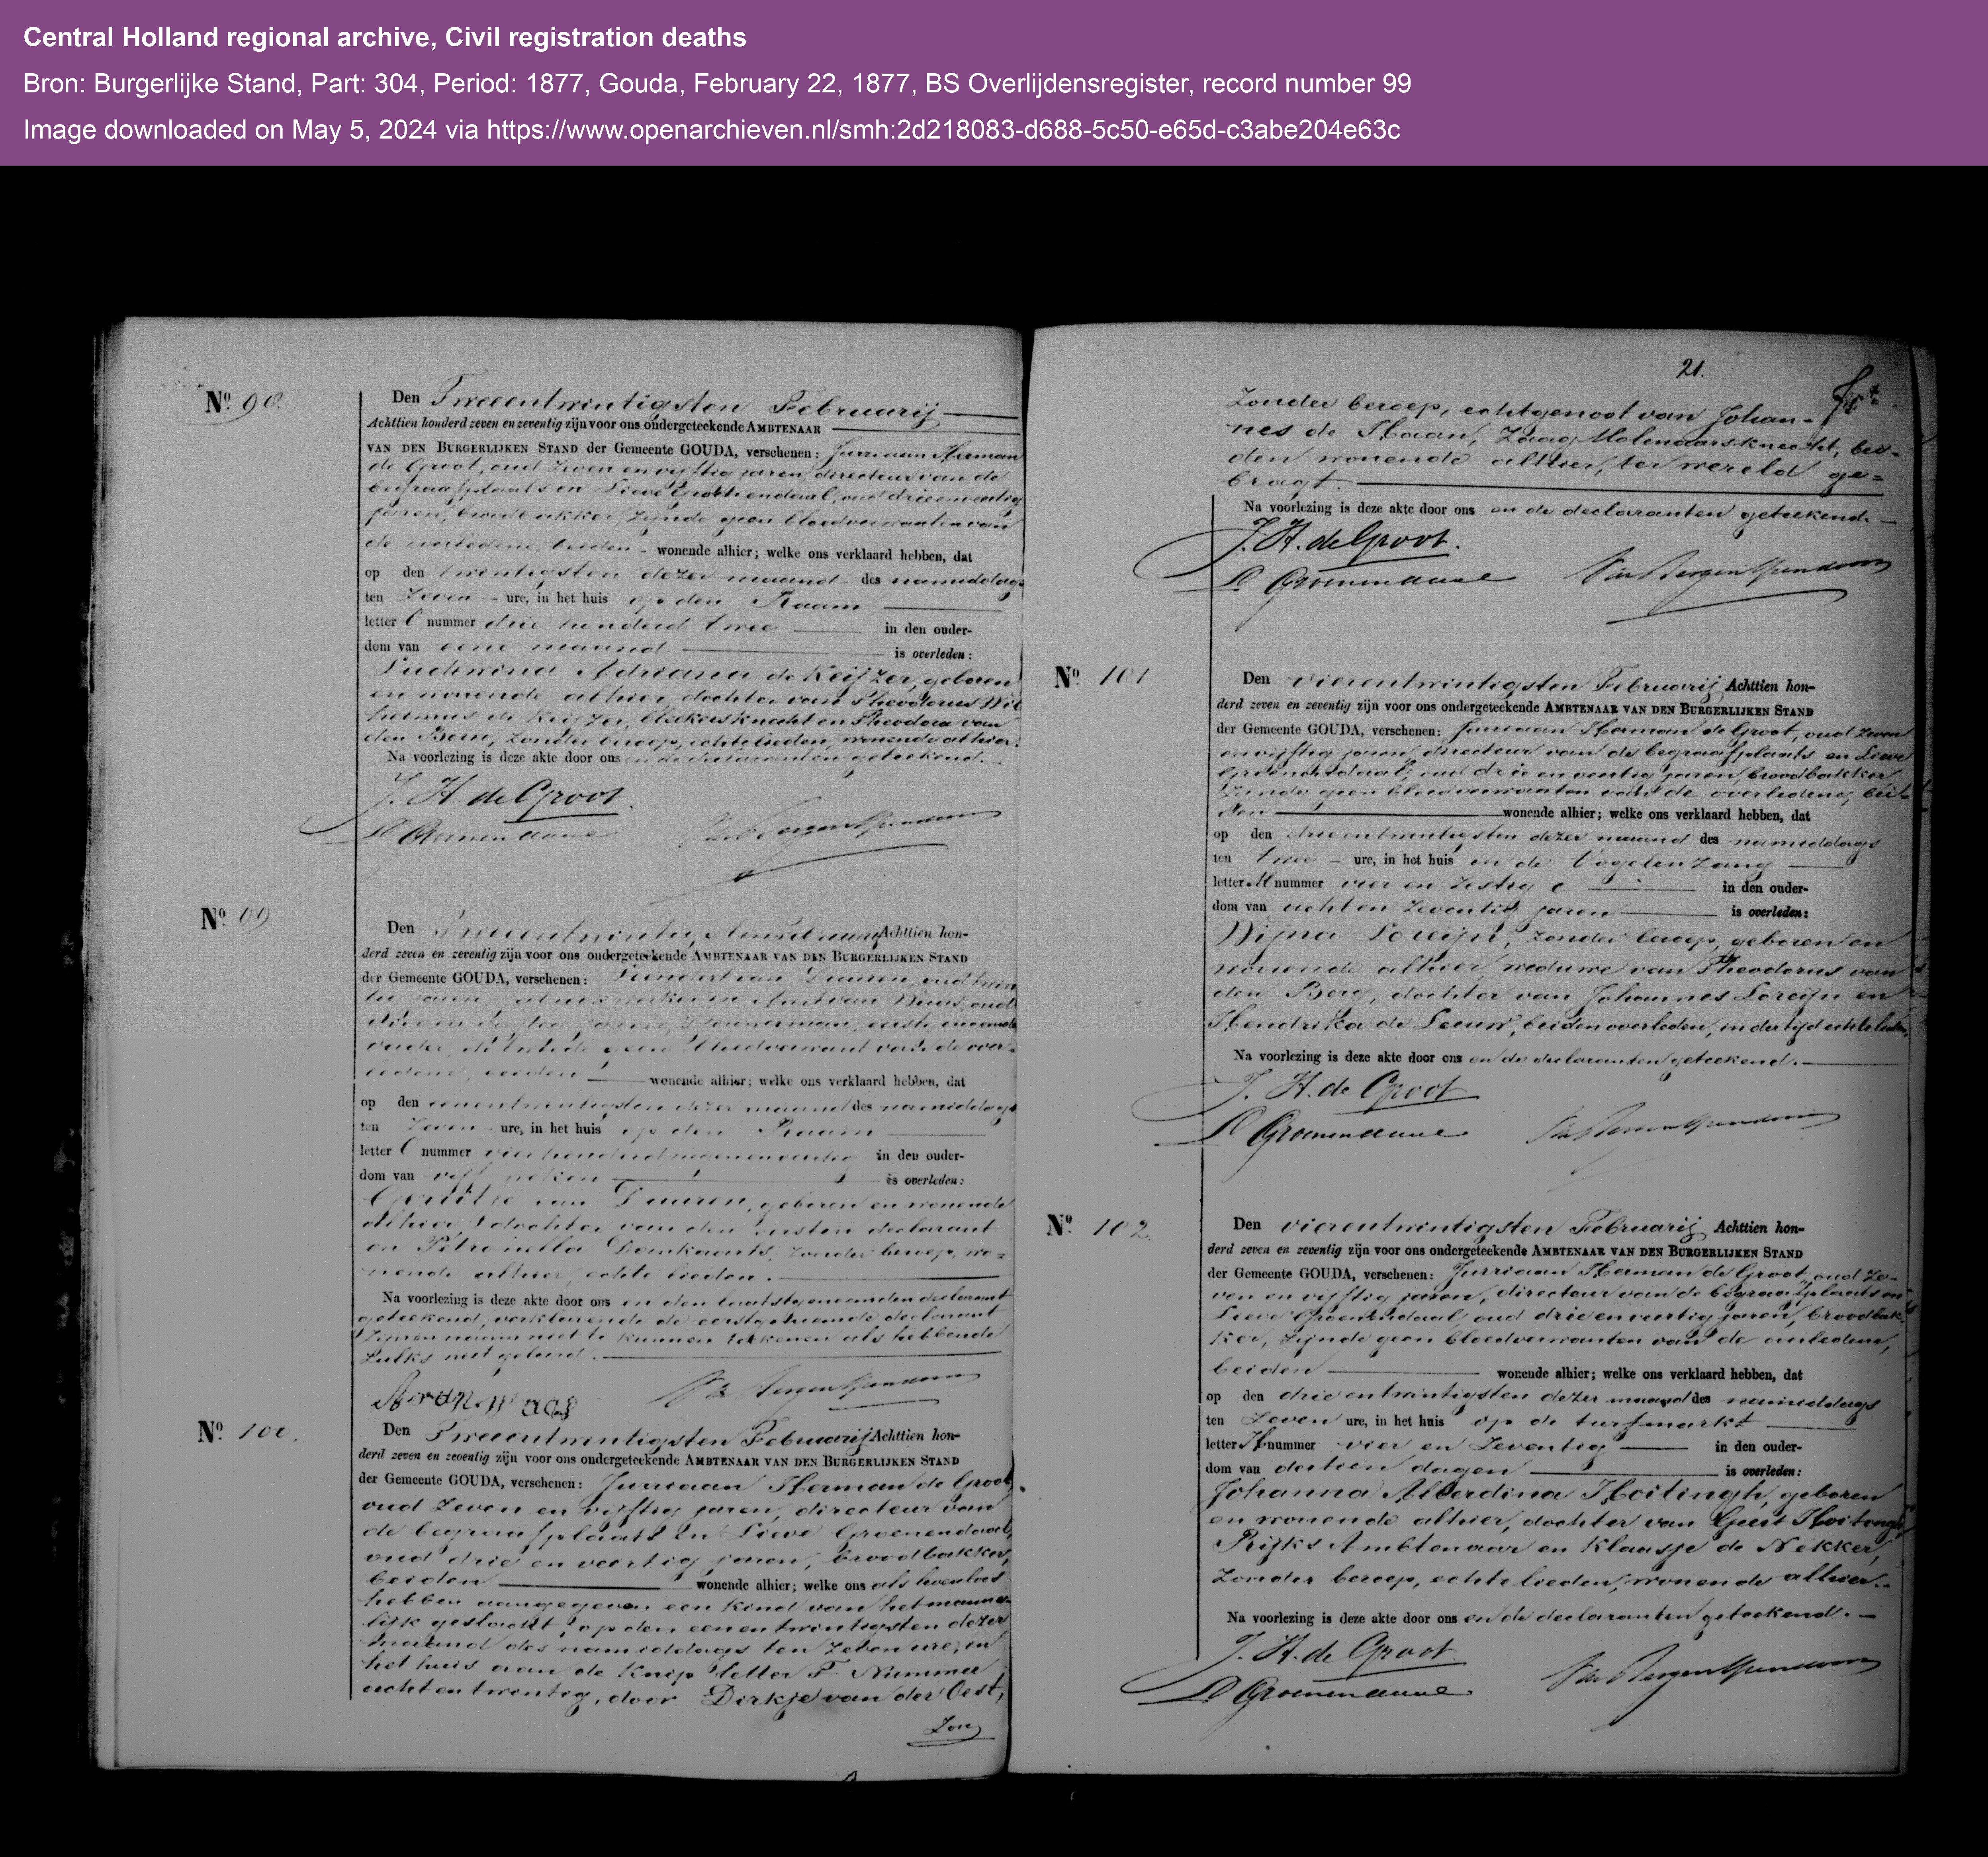 Central Holland regional archive, Civil registration deaths
Bron: Burgerlijke Stand, Part: 304, Period: 1877, Gouda, February 22, 1877, BS Overlijdensregister, record number 99
Image downloaded on May 5, 2024 via https://www.openarchieven.nl/smh:2d218083-d688-5c50-e65d-c3abe204e63c
No. 98.
Den Tweeentwintigsten Februarij
Achttien honderd zeven en zeventig zijn voor ons ondergeteekende AMBTENAAR
VAN DEN BURGERLIJKEN STAND der Gemeente GOUDA, verschenen: Jurriaan Herman
de Groot, oud zeven en vijftig jaren, directeur van de
begraafplaats en Lieve Groenendaal, oud drie en veertig
jaren, broodbakker, zijnde geen bloedverwanten van
de overledene, beiden - wonende alhier; welke ons verklaard hebben, dat
op den twintigsten dezer maand des namiddags
ten zeven ure, in het huis op den Raam
letter O nummer drie honderd twee in den ouder-
dom van eene maand is overleden:
Ludewina Adriana de Keijzer, geboren
en wonende alhier, dochter van Theodorus Wil
helmus de Keijzer, bleekersknecht en Theodora van
den Boom, zonder beroep, echtelieden, wonende alhier.
Na voorlezing is deze akte door ons en de declaranten geteekend.
J. H. de Groot.
L Groenendaal
No. 99
Den Tweeentwintigsten Februarij Achttien hon-
derd zeven en zeventig zijn voor ons ondergeteekende AMBTENAAR VAN DEN BURGERLIJKEN STAND
der Gemeente GOUDA, verschenen: van Duuren, oud twin
tig jaren, en Arie van Waas, oud
drie en jaren, eerstgenoemde
vader, de tweede geen bloedverwant van de over-
ledene, beiden wonende alhier; welke ons verklaard hebben, dat
op den eenentwintigsten dezer maand des namiddags
ten zeven ure, in het huis op den Raam
letter O nummer vierhonderd negenenveertig in den ouder-
dom van vijf weken is overleden:
Gerritje van Duuren, geboren en wonende
alhier, dochter van den eersten declarant
en Petronella Domkaarts, zonder beroep, wo=
nende alhier, echtelieden.
Na voorlezing is deze akte door ons en den laatstgenoemden declarant
geteekend, verklarende de eerstgenoemde declarant
zijnen naam niet te kunnen teekenen als hebbende
zulks niet geleerd.
No. 100.
Den Tweeentwintigsten Februarij Achttien hon-
derd zeven en zeventig zijn voor ons ondergeteekende AMBTENAAR VAN DEN BURGERLIJKEN STAND
der Gemeente GOUDA, verschenen: Jurriaan Herman de Groot,
oud zeven en vijftig jaren, directeur van
de begraafplaats en Lieve Groenendaal,
oud drie en veertig jaren, broodbakker,
beiden wonende alhier; welke ons als levenloos
hebben aangegeven een kind van het manne-
lijk geslacht, op den eenentwintigsten dezer
maand des namiddags ten zeven ure, in
het huis aan de Knip letter F Nummer
achtentwintig, door Dirkje van der Oest,
Zon
21.
Zonder beroep, echtgenoot van Johan-
nes de Haan, Zaag Molenaarsknecht, bei-
den wonende alhier, ter wereld ge=
bragt.
Na voorlezing is deze akte door ons en de declaranten geteekend.
J. H. de Groot.
L Groenendaal
No. 101
Den vierentwintigsten Februarij Achttien hon-
derd zeven en zeventig zijn voor ons ondergeteekende AMBTENAAR VAN DEN BURGERLIJKEN STAND
der Gemeente GOUDA, verschenen: Jurriaan Herman de Groot, oud zeven
en vijftig jaren, directeur van de begraafplaats en Lieve
Groenendaal, oud drie en veertig jaren, broodbakker
zijnde geen bloedverwanten van de overledene, bei-
den wonende alhier; welke ons verklaard hebben, dat
op den drieentwintigsten dezer maand des namiddags
ten twee ure, in het huis in de Vogelenzang
letter M nummer vier en zestig c in den ouder-
dom van acht en zeventig jaren is overleden:
Wijna Loreijn, zonder beroep, geboren en
wonende alhier, weduwe van Theodorus van
den Berg, dochter van Johannes Loreijn en
Hendrika de Leeuw, beiden overleden, in der tijd echtelieden.
Na voorlezing is deze akte door ons en de declaranten geteekend.
J. H. de Groot
L Groenendaal
No. 102.
Den vierentwintigsten Februarij Achttien hon-
derd zeven en zeventig zijn voor ons ondergeteekende AMBTENAAR VAN DEN BURGERLIJKEN STAND
der Gemeente GOUDA, verschenen: Jurriaan Herman de Groot, oud ze-
ven en vijftig jaren, directeur van de begraafplaats en
Lieve Groenendaal, oud drie en veertig jaren, broodbak-
ker, zijnde geen bloedverwanten van de overledene,
beiden wonende alhier; welke ons verklaard hebben, dat
op den drieentwintigsten dezer maand des namiddags
ten zeven ure, in het huis op de turfmarkt
letter H nummer vier en zeventig in den ouder-
dom van dertien dagen is overleden:
Johanna Alberdina Hoitingh, geboren
en wonende alhier, dochter van Geert Hoitingh,
Rijks Ambtenaar en Klaasje de Nekker,
zonder beroep, echtelieden, wonende alhier.
Na voorlezing is deze akte door ons en de declaranten geteekend.
J. H. de Groot
L Groenendaal